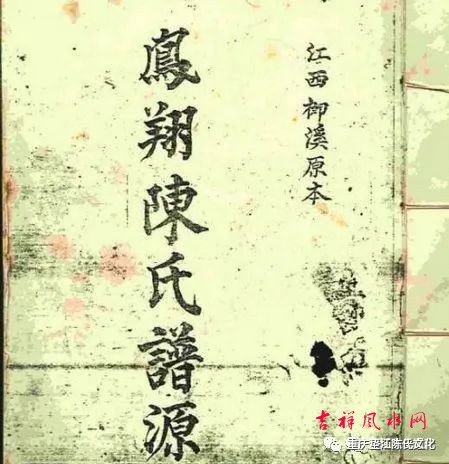 江西柳溪原本
鳳翔陳氏譜源
吉祥风水网
江陈氏文化